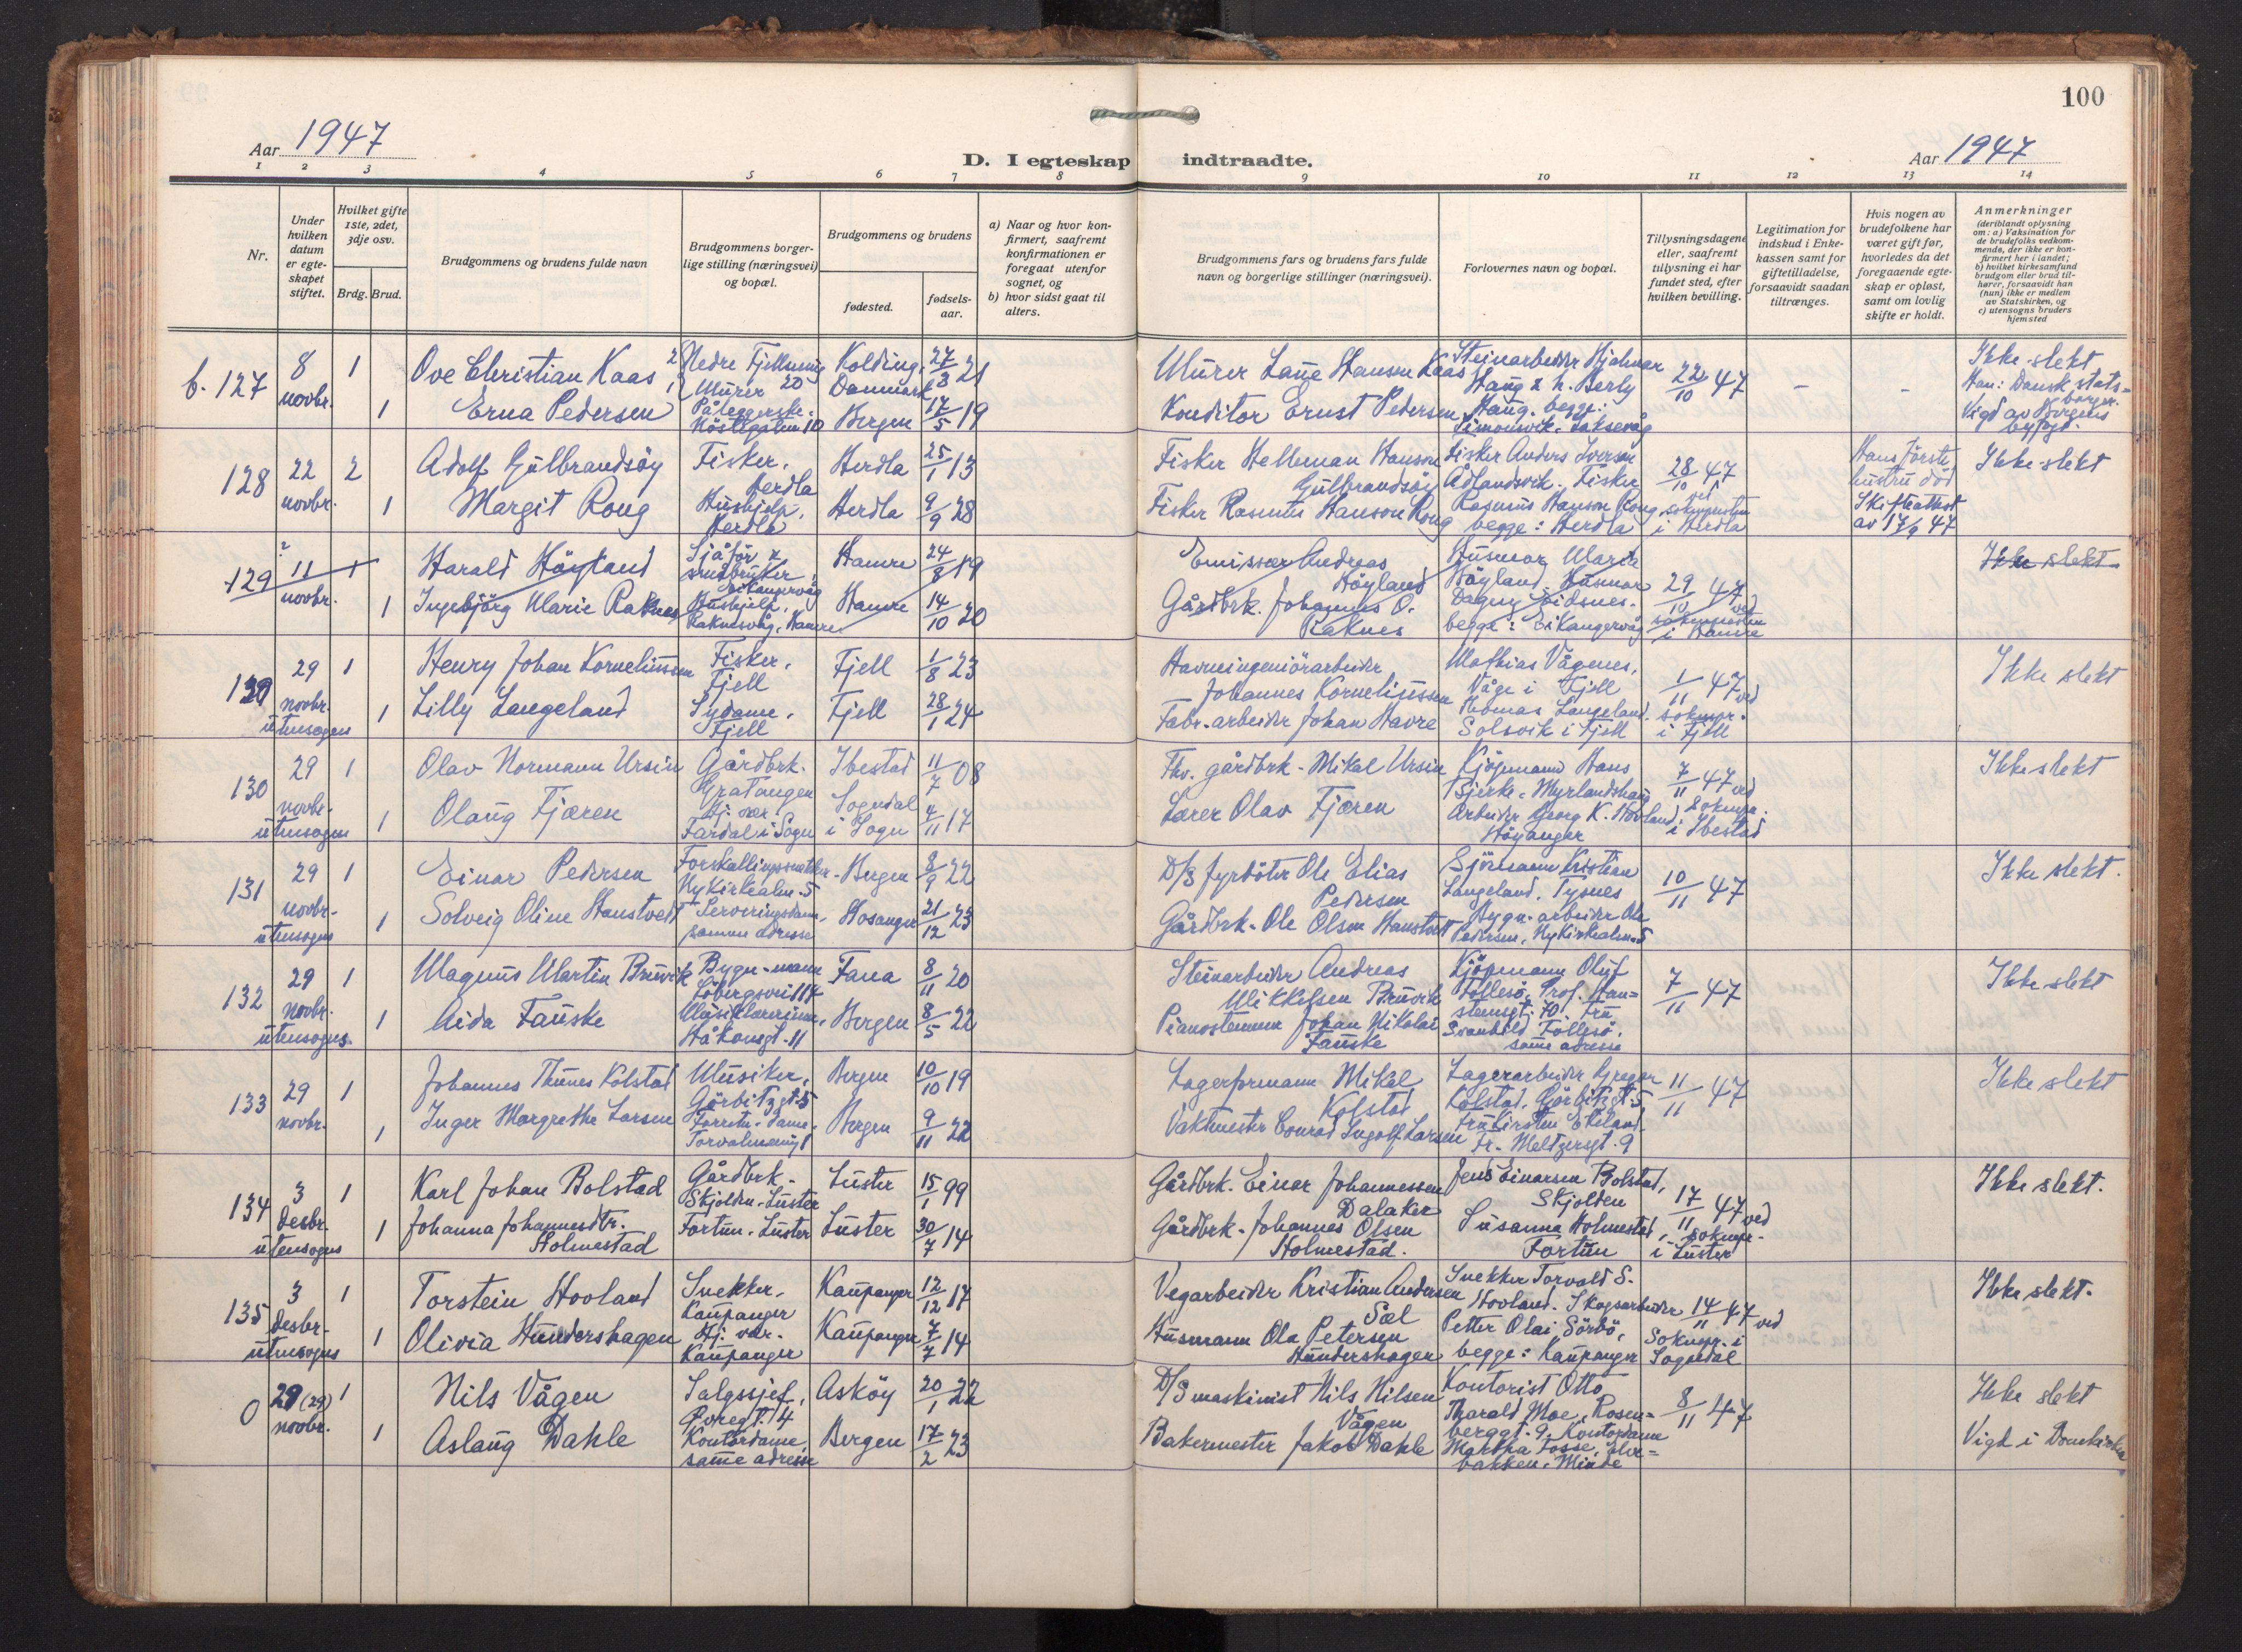 100
Aar 1947
D. I egteskap indtraadte.
Aar 1947
1 2 3 4 5 6 7 8 9 10 11 12 13 14
Nr.
Under hvilken datum er egteskapet stiftet.
Hvilket gifte 1ste, 2det, 3dje osv.
Brdg. Brud.
Brudgommens og brudens fulde navn
Brudgommens borgerlige stilling (næringsvei) og bopæl.
Brudgommens og brudens
fødested.
fødselsaar.
a) Naar og hvor konfirmert, saafremt konfirmationen er foregaat utenfor sognet, og
b) hvor sidst gaat til alters.
Brudgommens fars og brudens fars fulde navn og borgerlige stillinger (næringsvei).
Forlovernes navn og bopæl.
Tillysningsdagene eller, saafremt tillysning ei har fundet sted, efter hvilken bevilling.
Legitimation for indskud i Enkekassen samt for giftetilladelse, forsaavidt saadan tiltrænges.
Hvis nogen av brudefolkene har været gift før, hvorledes da det foregaaende egteskap er opløst, samt om lovlig skifte er holdt.
Anmerkninger
(deriblandt oplysning om: a) Vaksination for de brudefolks vedkommende, der ikke er konfirmert her i landet; b) hvilket kirkesamfund brudgom eller brud tilhører, forsaavidt han (hun) ikke er medlem av Statskirken, og c) utensogns bruders hjemsted
b. 127 8 novbr. 1 Ove Christian Kaas Nedre Fjellsmug 20 Murer Kolding, Danmark 27/3 21 Murer Laue Hansen Kaas Steinarbeider Hjalmar Haug & h. Berly 22/10 47 - - Ikke slekt
Han: Dansk statsborger.
1 Erna Pedersen Påleggerske. 10 Bergen 17/5 19 Konditor Ernst Pedersen Haug. begge: Simonsvik. Laksevåg Vigd av Bergens byfogd.
128 22 novbr. 2 Adolf Gulbrandsøy Fisker. Herdla Herdla 25/1 13 Fisker Helleman Hanson Gulbrandsøy Fisker Anders Iversen Ådlandsvik. Fisker 28/10 47 Hans første hustru död Ikke slekt
1 Margit Rong Hushjelp. Herdla Herdla 9/9 28 Fisker Rasmus Hanson Rong Rasmus Hanson Rong begge: Herdla ved soknepresten i Herdla Skifteattest av 17/9 47
129 11 novbr. 1 Harald Høyland Sjåfør & småbruker, Eikangervåg Hamre 24/8 19 Emissær Andreas Høyland Husmor Marie Høyland. Husmor 29/10 47 Ikke slekt
1 Ingebjørg Marie Raknes Hushjelp. Raknesvåg, Hamre Hamre 14/10 20 Gårdbrk. Johannes O. Raknes Dagny Eidsnes. begge: Eikangervåg ved soknepresten i Hamre
129 29 novbr. utensogns 1 Henry Johan Korneliussen Fisker. Fjell Fjell 1/8 23 Havneingeniörarbeider Johannes Korneliussen Mathias Vågenes, Våge i Fjell 1/11 47 ved Ikke slekt
1 Lilly Langeland Sydame. Fjell Fjell 28/1 24 Fabr.arbeider Johan Havre Thomas Langeland. Solsvik i Fjell soknepr. i Fjell
130 29 novbr. utensogns 1 Olav Normann Ursin Gårdbrk. Gratangen Ibestad 11/7 08 Fhv. gårdbrk. Mikal Ursin Kjøpmann Hans Bjerke, Myrlandshaug 7/11 47 ved Ikke slekt
1 Olaug Fjæren Hj. vær. Fardal i Sogn Sogndal i Sogn 4/11 17 Lærer Olav Fjæren Arbeider Georg K. Hovland, Høyanger soknepr. i Ibestad
131 29 novbr. utensogns 1 Einar Pedersen Nykirkealm. 5 Bergen 8/9 22 D/S fyrböter Ole Elias Pedersen Sjømann Kristian Langeland, Tysnes 10/11 47 Ikke slekt.
1 Solveig Oline Hanstveit Serveringsdame, samme adresse Hosanger 21/12 23 Gårdbrk. Ole Olsen Hanstveit Bygn. arbeider Ole Pedersen, Nykirkealm. 5
132 29 novbr. utensogns. 1 Magnus Martin Bruvik Bygn.mann Löbergsvei 114 Fana 8/11 20 Steinarbeider Andreas Mikkelsen Bruvik Kjøpmann Oluf Follesø, Prof. Hansteensgt. 70. Fru 7/11 47 Ikke slekt
1 Aida Fauske Håkonsgt. 11 Bergen 8/5 22 Pianostemmer Johan Nikolai Fauske Svanhild Follesø. same adresse
133 29 novbr. 1 Johannes Thunes Kolstad Musiker, Gørbitzgt. 5 Bergen 10/10 19 Lagerformann Mikal Kolstad Lagerarbeider Gregar Kolstad, Gørbitzgt. 5 11/11 47 Ikke slekt
1 Inger Margrethe Larsen Forretn. dame, Torvalmenng 1 Bergen 9/11 22 Vaktmester Conrad Ingolf Larsen Fru Kirsten Eikeland. Fr. Meltzersgt. 9
134 3 desbr. utensogns 1 Karl Johan Bolstad Gårdbrk. Skjolden. Luster Luster 15/1 99 Gårdbrk. Einar Johannessen Dalaker Jens Einarsen Bolstad, Skjolden 17/11 47 ved Ikke slekt.
1 Johanna Johannesdtr. Holmestad Fortun. Luster Luster 30/7 14 Gårdbrk. Johannes Olsen Holmestad. Susanna Holmestad, Fortun soknepr. i Luster
135 3 desbr. utensogns 1 Torstein Hovland Snekker. Kaupanger Kaupanger 12/12 17 Vegarbeider Kristian Andersen Sæl Snekker Torvald S. Hovland. Skogsarbeider 14/11 47 ved Ikke slekt.
1 Olivia Hundershagen Hj. vær. Kaupanger Kaupanger 7/7 14 Husmann Ola Petersen Hundershagen Petter Olai Sørbø, begge: Kaupanger Soknepr. i Sogndal
0 29 (29) novbr. 1 Nils Vågen Salgssjef, Øvregt. 14 Asköy 20/1 22 D/S maskinist Nils Nilsen Vågen Kontorist Otto Tharald Moe, Rosenberggt. 9. Kontordame 8/11 47 Ikke slekt
1 Aslaug Dahle Kontordame, same adresse Bergen 17/2 23 Bakermester Jakob Dahle Martha Fosse, Minde Vigd i Domkirken